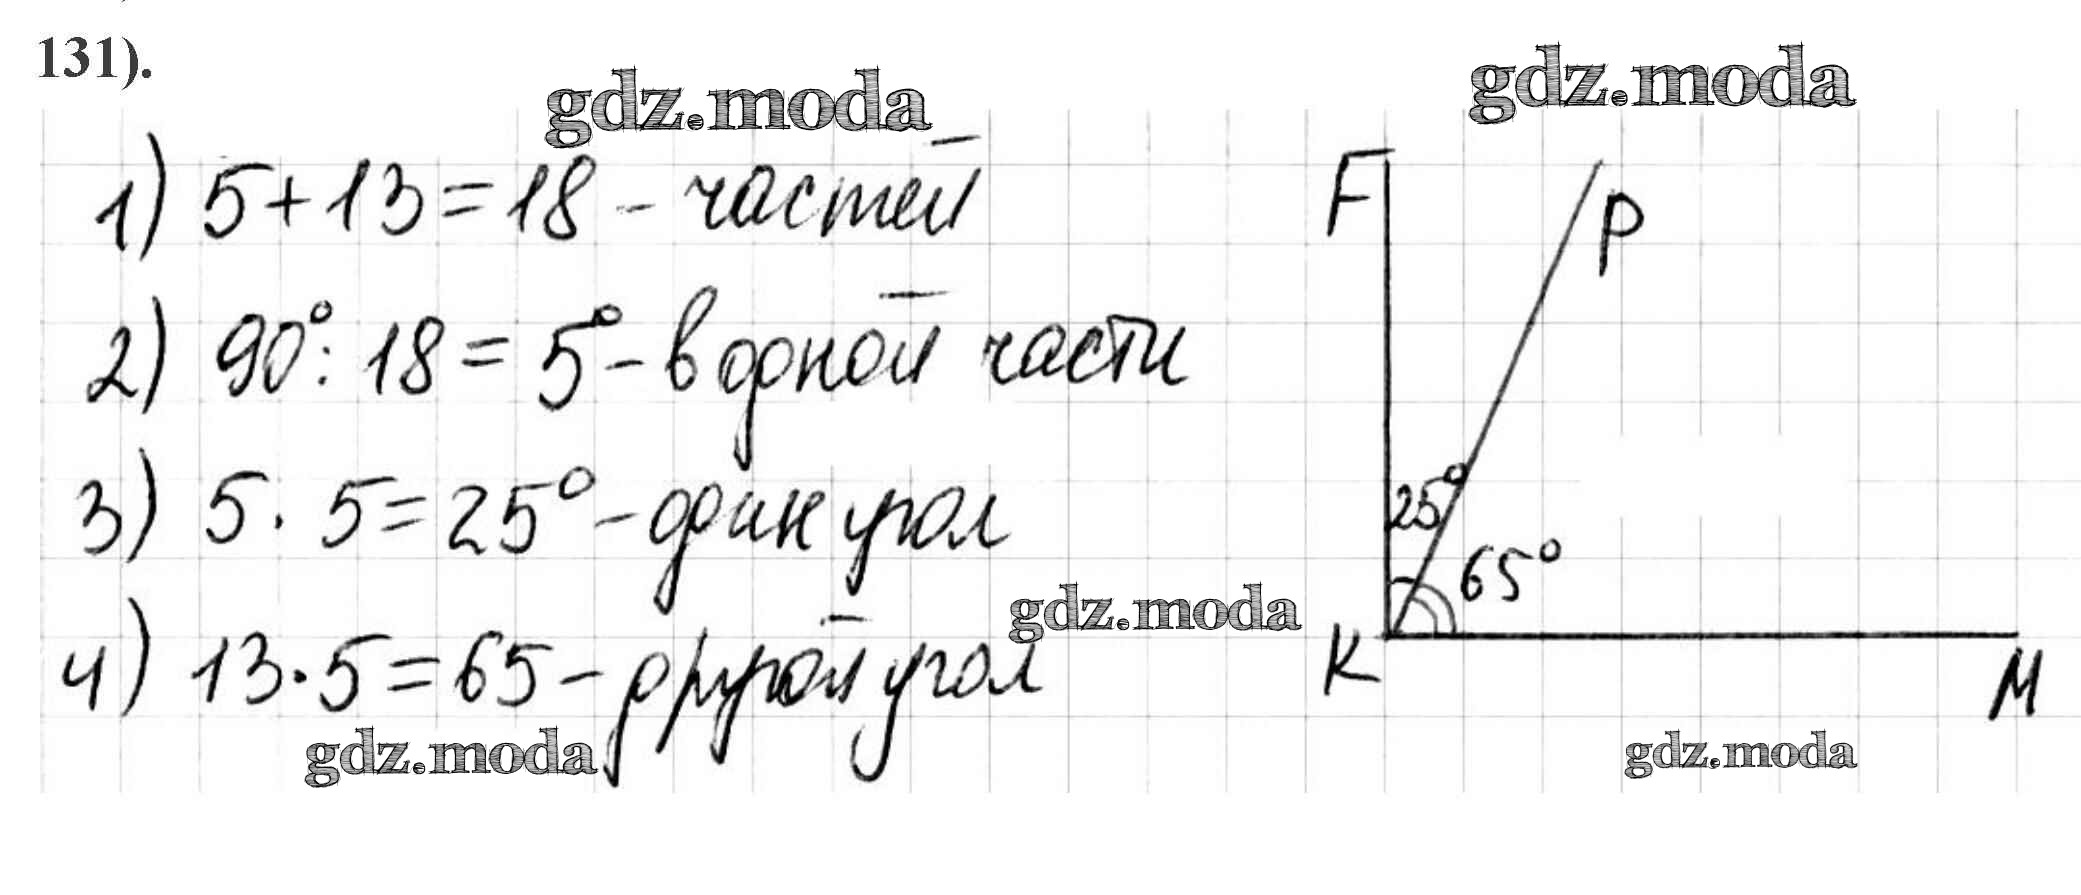 131).
gdz.moda
gdz.moda
1) 5+13=18 - частей
2) 90°: 18 = 5° - в одной части
3) 5 · 5 = 25° - один угол
4) 13 · 5 = 65 - другой угол
F
P
25°
65°
K
M
gdz.moda
gdz.moda
gdz.moda